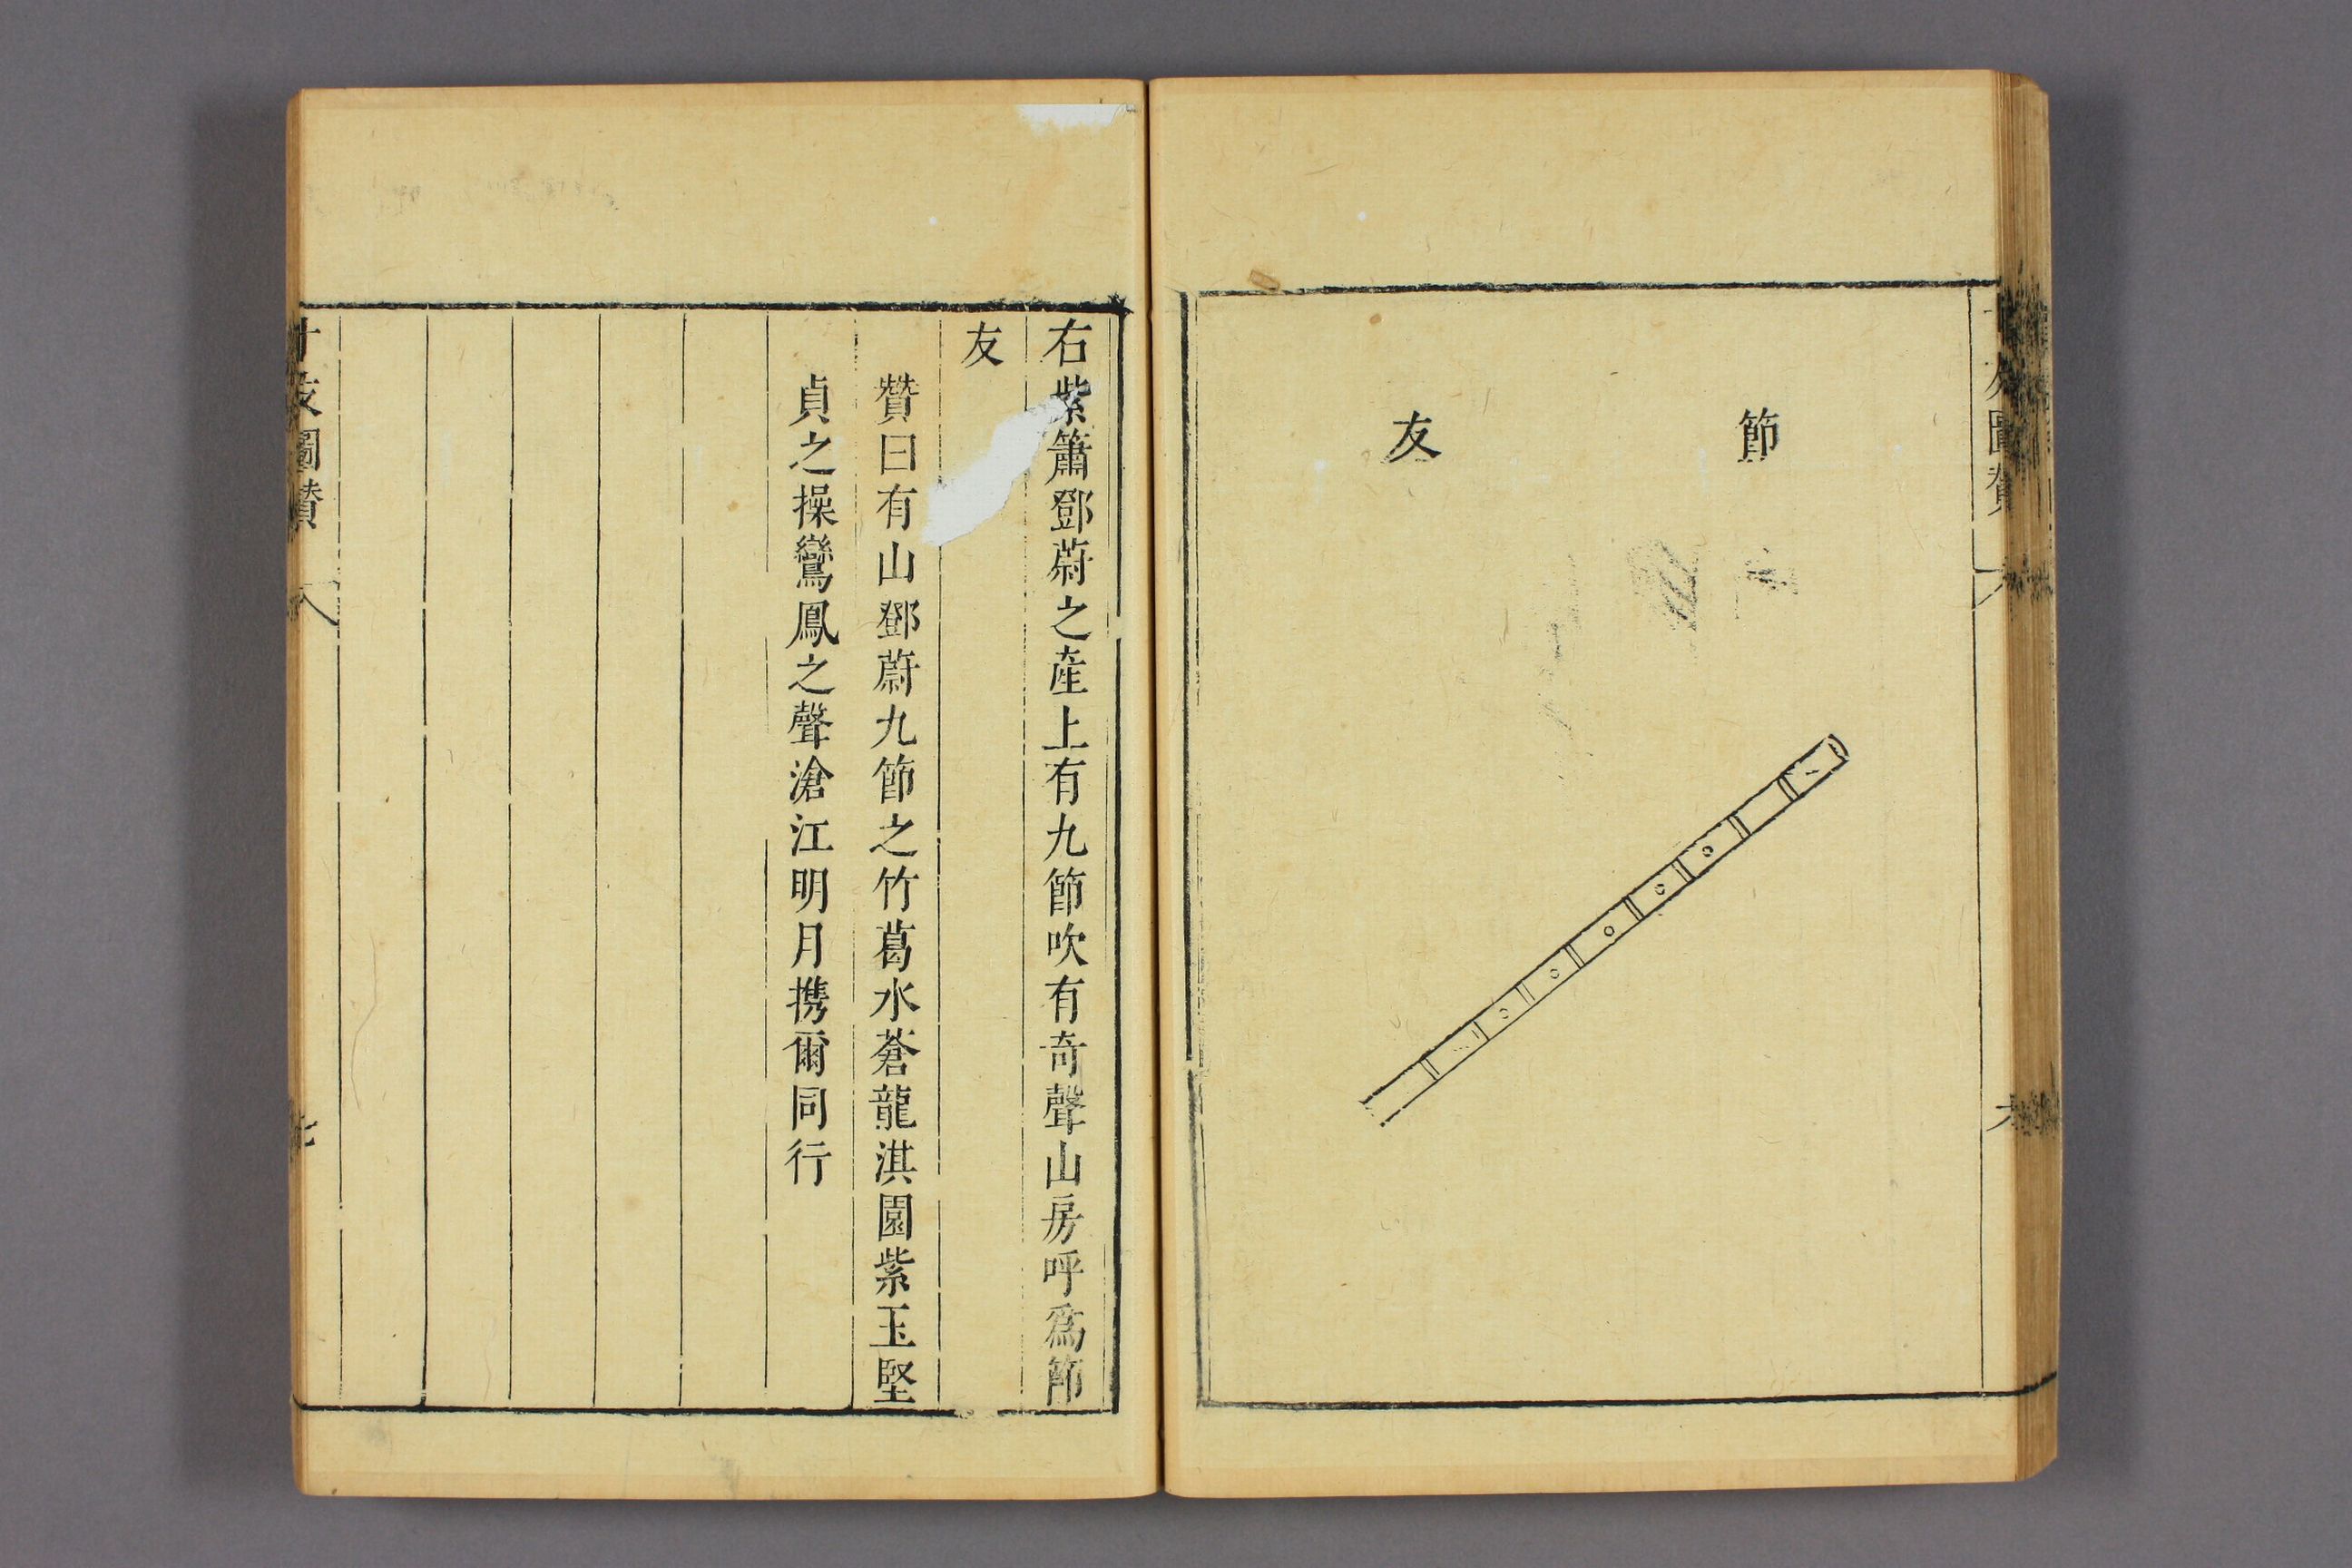 節友
右紫簫鄧蔚之産上有九節吹有奇聲山房呼爲節
友
贊曰有山鄧蔚九節之竹葛水蒼龍淇園紫玉堅
貞之操鸞鳳之聲滄江明月携爾同行
十友圖贊